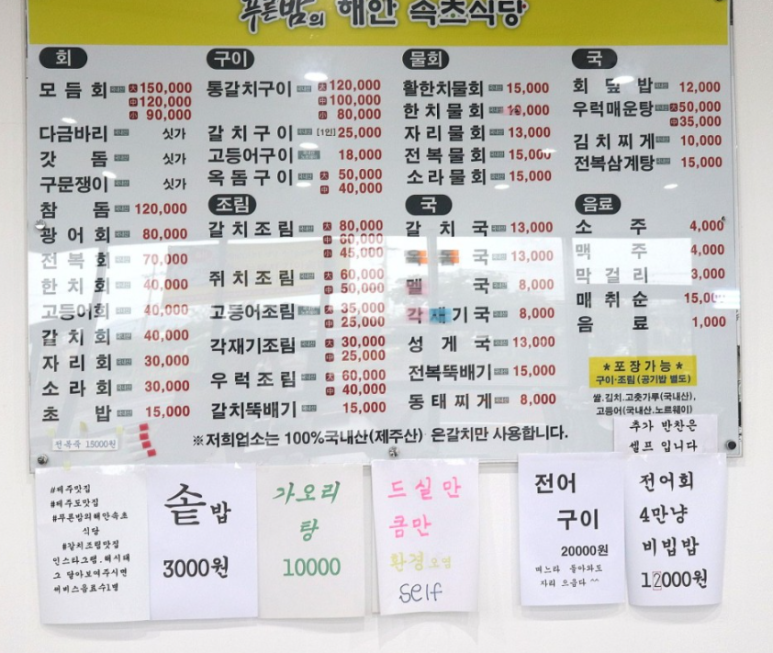 푸른밤의 해안 속초식당
회
모듬회 大150,000
中120,000
小 90,000
다금바리 싯가
갓돔 싯가
구문쟁이 싯가
참돔 120,000
광어회 80,000
전복회 70,000
한치회 40,000
고등어회 40,000
갈치회 40,000
자리회 30,000
소라회 30,000
초밥 15,000
전복죽 15000원
구이
통갈치구이 大120,000
中100,000
小 80,000
갈치구이 [1인] 25,000
고등어구이 18,000
옥돔구이 大 50,000
中 40,000
조림
갈치조림 大 80,000
中 60,000
小 45,000
쥐치조림 大 60,000
中 50,000
고등어조림 大 35,000
中 25,000
각재기조림 大 30,000
中 25,000
우럭조림 大 60,000
中 40,000
갈치뚝배기 15,000
물회
활한치물회 15,000
한치물회
자리물회 13,000
전복물회 15,000
소라물회 15,000
국
갈치국 13,000
옥돔국 13,000
멜국 8,000
각재기국 8,000
성게국 13,000
전복뚝배기 15,000
동태찌게 8,000
국
회덮밥 12,000
우럭매운탕 大50,000
中35,000
김치찌게 10,000
전복삼계탕 15,000
음료
소주 4,000
맥주 4,000
막걸리 3,000
매취순 15,000
음료 1,000
★포장가능★
구이·조림(공기밥 별도)
쌀.김치.고춧가루(국내산),
고등어(국내산.노르웨이)
※저희업소는 100%국내산(제주산) 은갈치만 사용합니다.
추가 반찬은
셀프 입니다
#제주맛집
#제주도맛집
#푸른밤의해안속초
식당
#갈치조림맛집
인스타그램.해시태
그 달아보여주시면
서비스음료수1병
솥밥
3000원
가오리
탕
10000
드실만
큼만
환경오염
self
전어
구이
20000원
며느리 돌아와도
자리 뜨읍다 ^^
전어회
4만냥
비빔밥
12000원